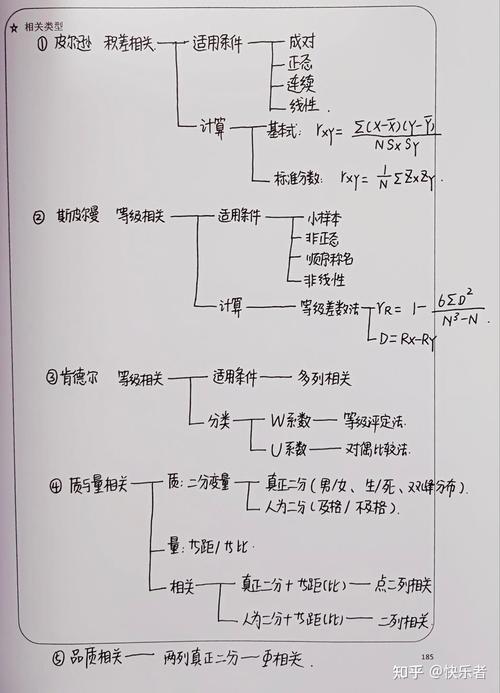 ☆ 相关类型
① 皮尔逊 积差相关 适用条件 成对
正态
连续
线性.
计算 基本式: rxy= Σ(X-X̄)(Y-Ȳ) / NSxSy
标准分数: rxy= 1/N ΣZxZy.
② 斯皮尔曼 等级相关 适用条件 小样本
非正态
顺序称名
非线性
计算 等级差数法 rR = 1- 6ΣD² / N³-N.
D=Rx-Ry
③ 肯德尔 等级相关 适用条件 多列相关
分类 W系数 等级评定法.
U系数 对偶比较法.
④ 质与量相关 质:二分变量 真正二分(男/女、生/死、双峰分布).
人为二分(及格/不及格).
量:等距/等比.
相关 真正二分+等距(比) 点二列相关
人为二分+等距(比) 二列相关.
185
⑤ 品质相关 两列真正二分 Φ相关.
知乎 @快乐者